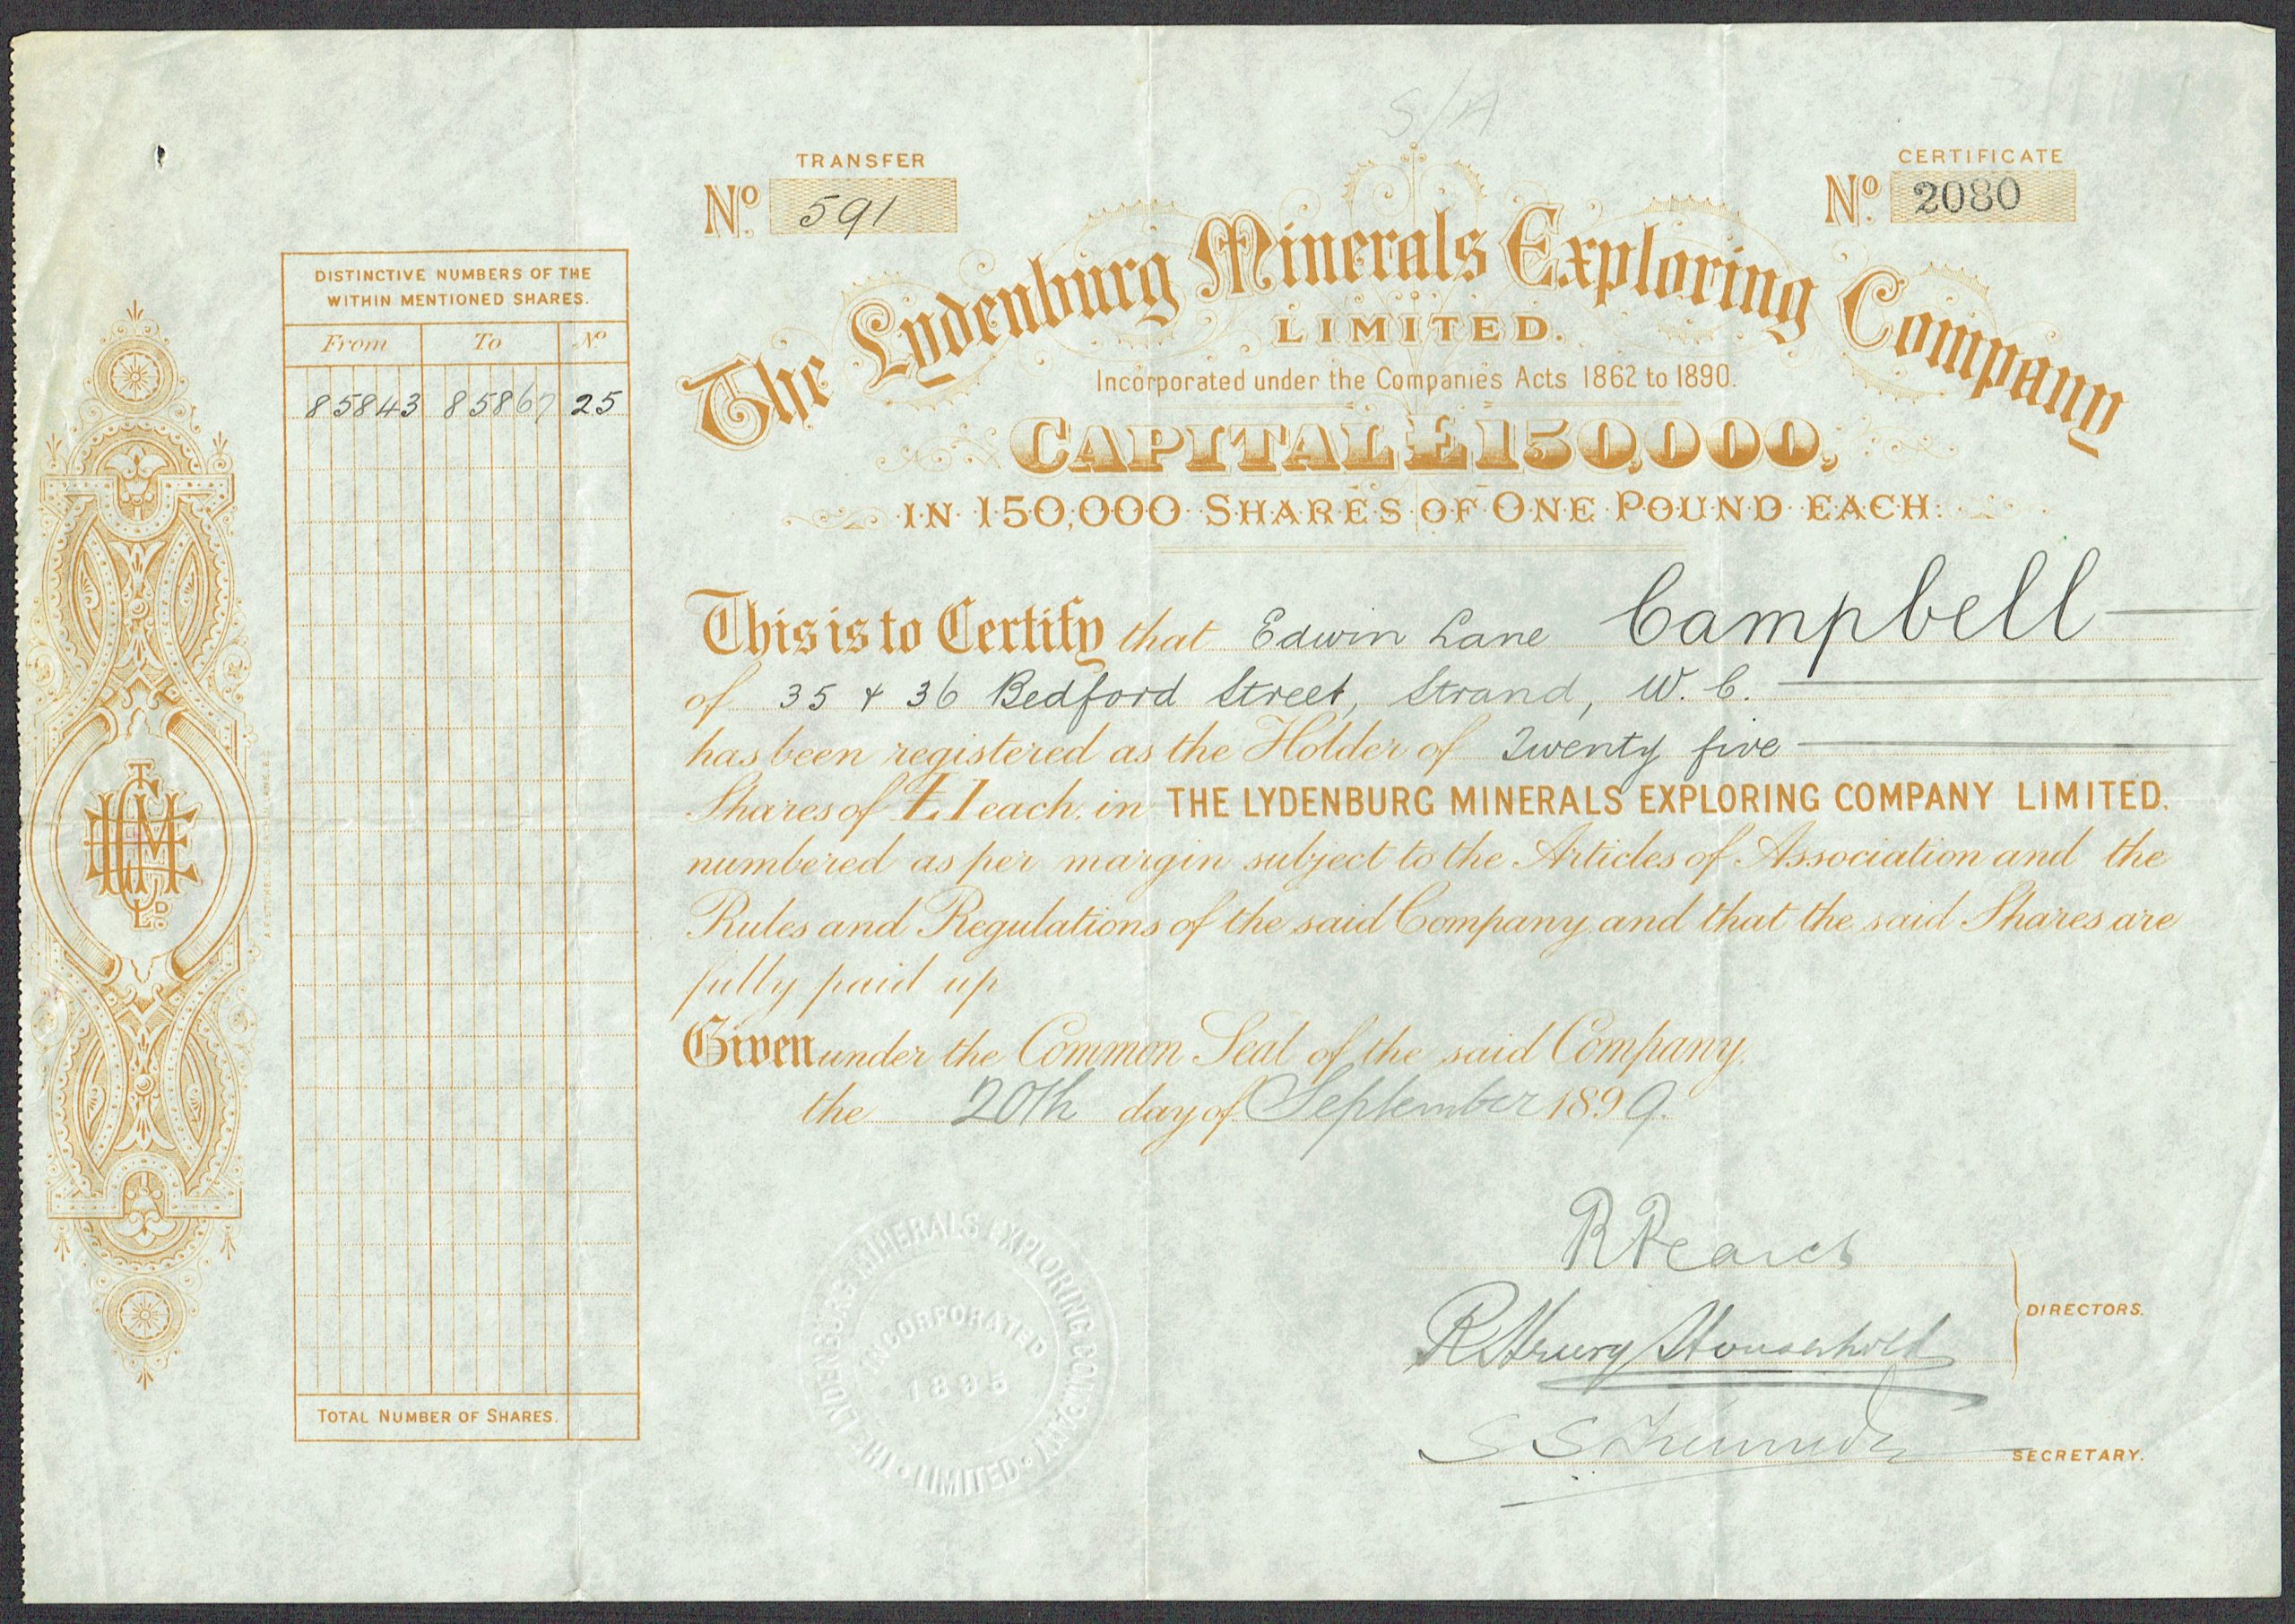 S/A
TRANSFER
No. 591
CERTIFICATE
No. 2080
The Lydenburg Minerals Exploring Company
LIMITED.
Incorporated under the Companies Acts 1862 to 1890.
CAPITAL £150,000,
IN 150,000 SHARES OF ONE POUND EACH.
DISTINCTIVE NUMBERS OF THE
WITHIN MENTIONED SHARES.
From To No
85843 85867 25
TOTAL NUMBER OF SHARES.
This is to Certify that Edwin Lane Campbell
of 35 & 36 Bedford Street, Strand, W. C.
has been registered as the Holder of Twenty five
Shares of £1 each in THE LYDENBURG MINERALS EXPLORING COMPANY LIMITED.
numbered as per margin subject to the Articles of Association and the
Rules and Regulations of the said Company and that the said Shares are
fully paid up
Given under the Common Seal of the said Company.
the 20th day of September 1899.
THE LYDENBURG MINERALS EXPLORING COMPANY LIMITED
INCORPORATED
1895
R Pearce
Household
DIRECTORS.
SECRETARY.